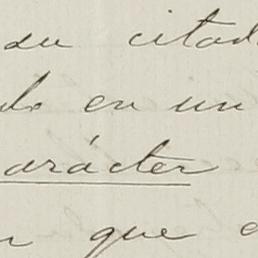 su citad
do en un
arácter
n que e